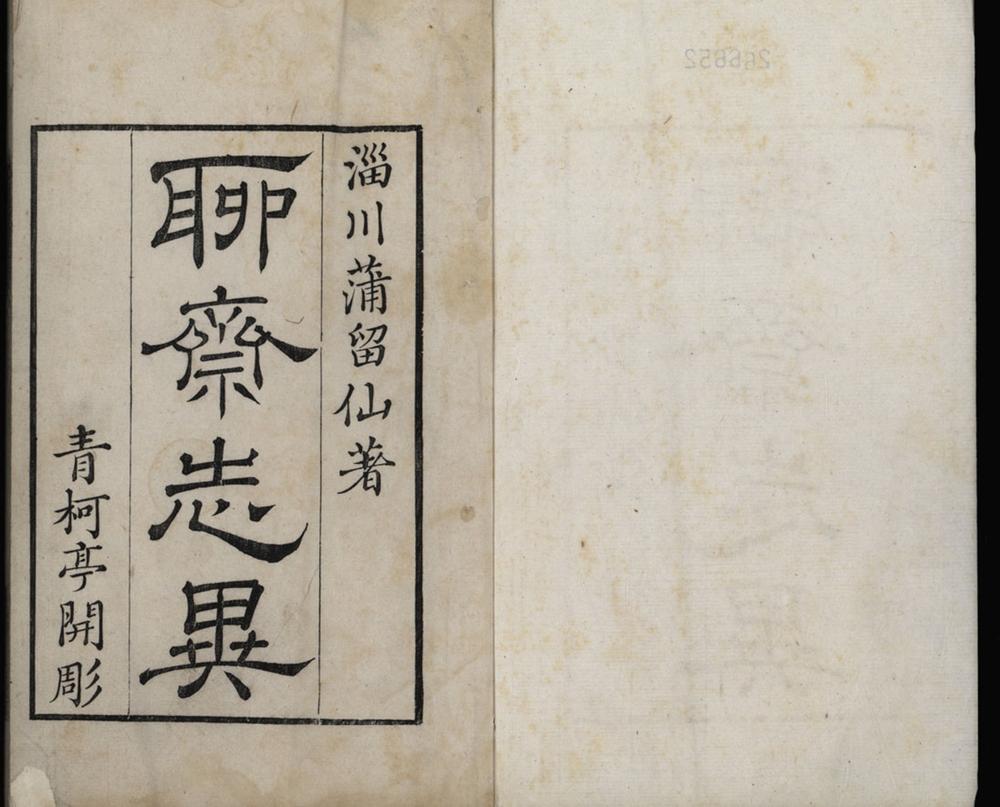 淄川蒲留仙著
聊齋志異
青柯亭開彫
266652